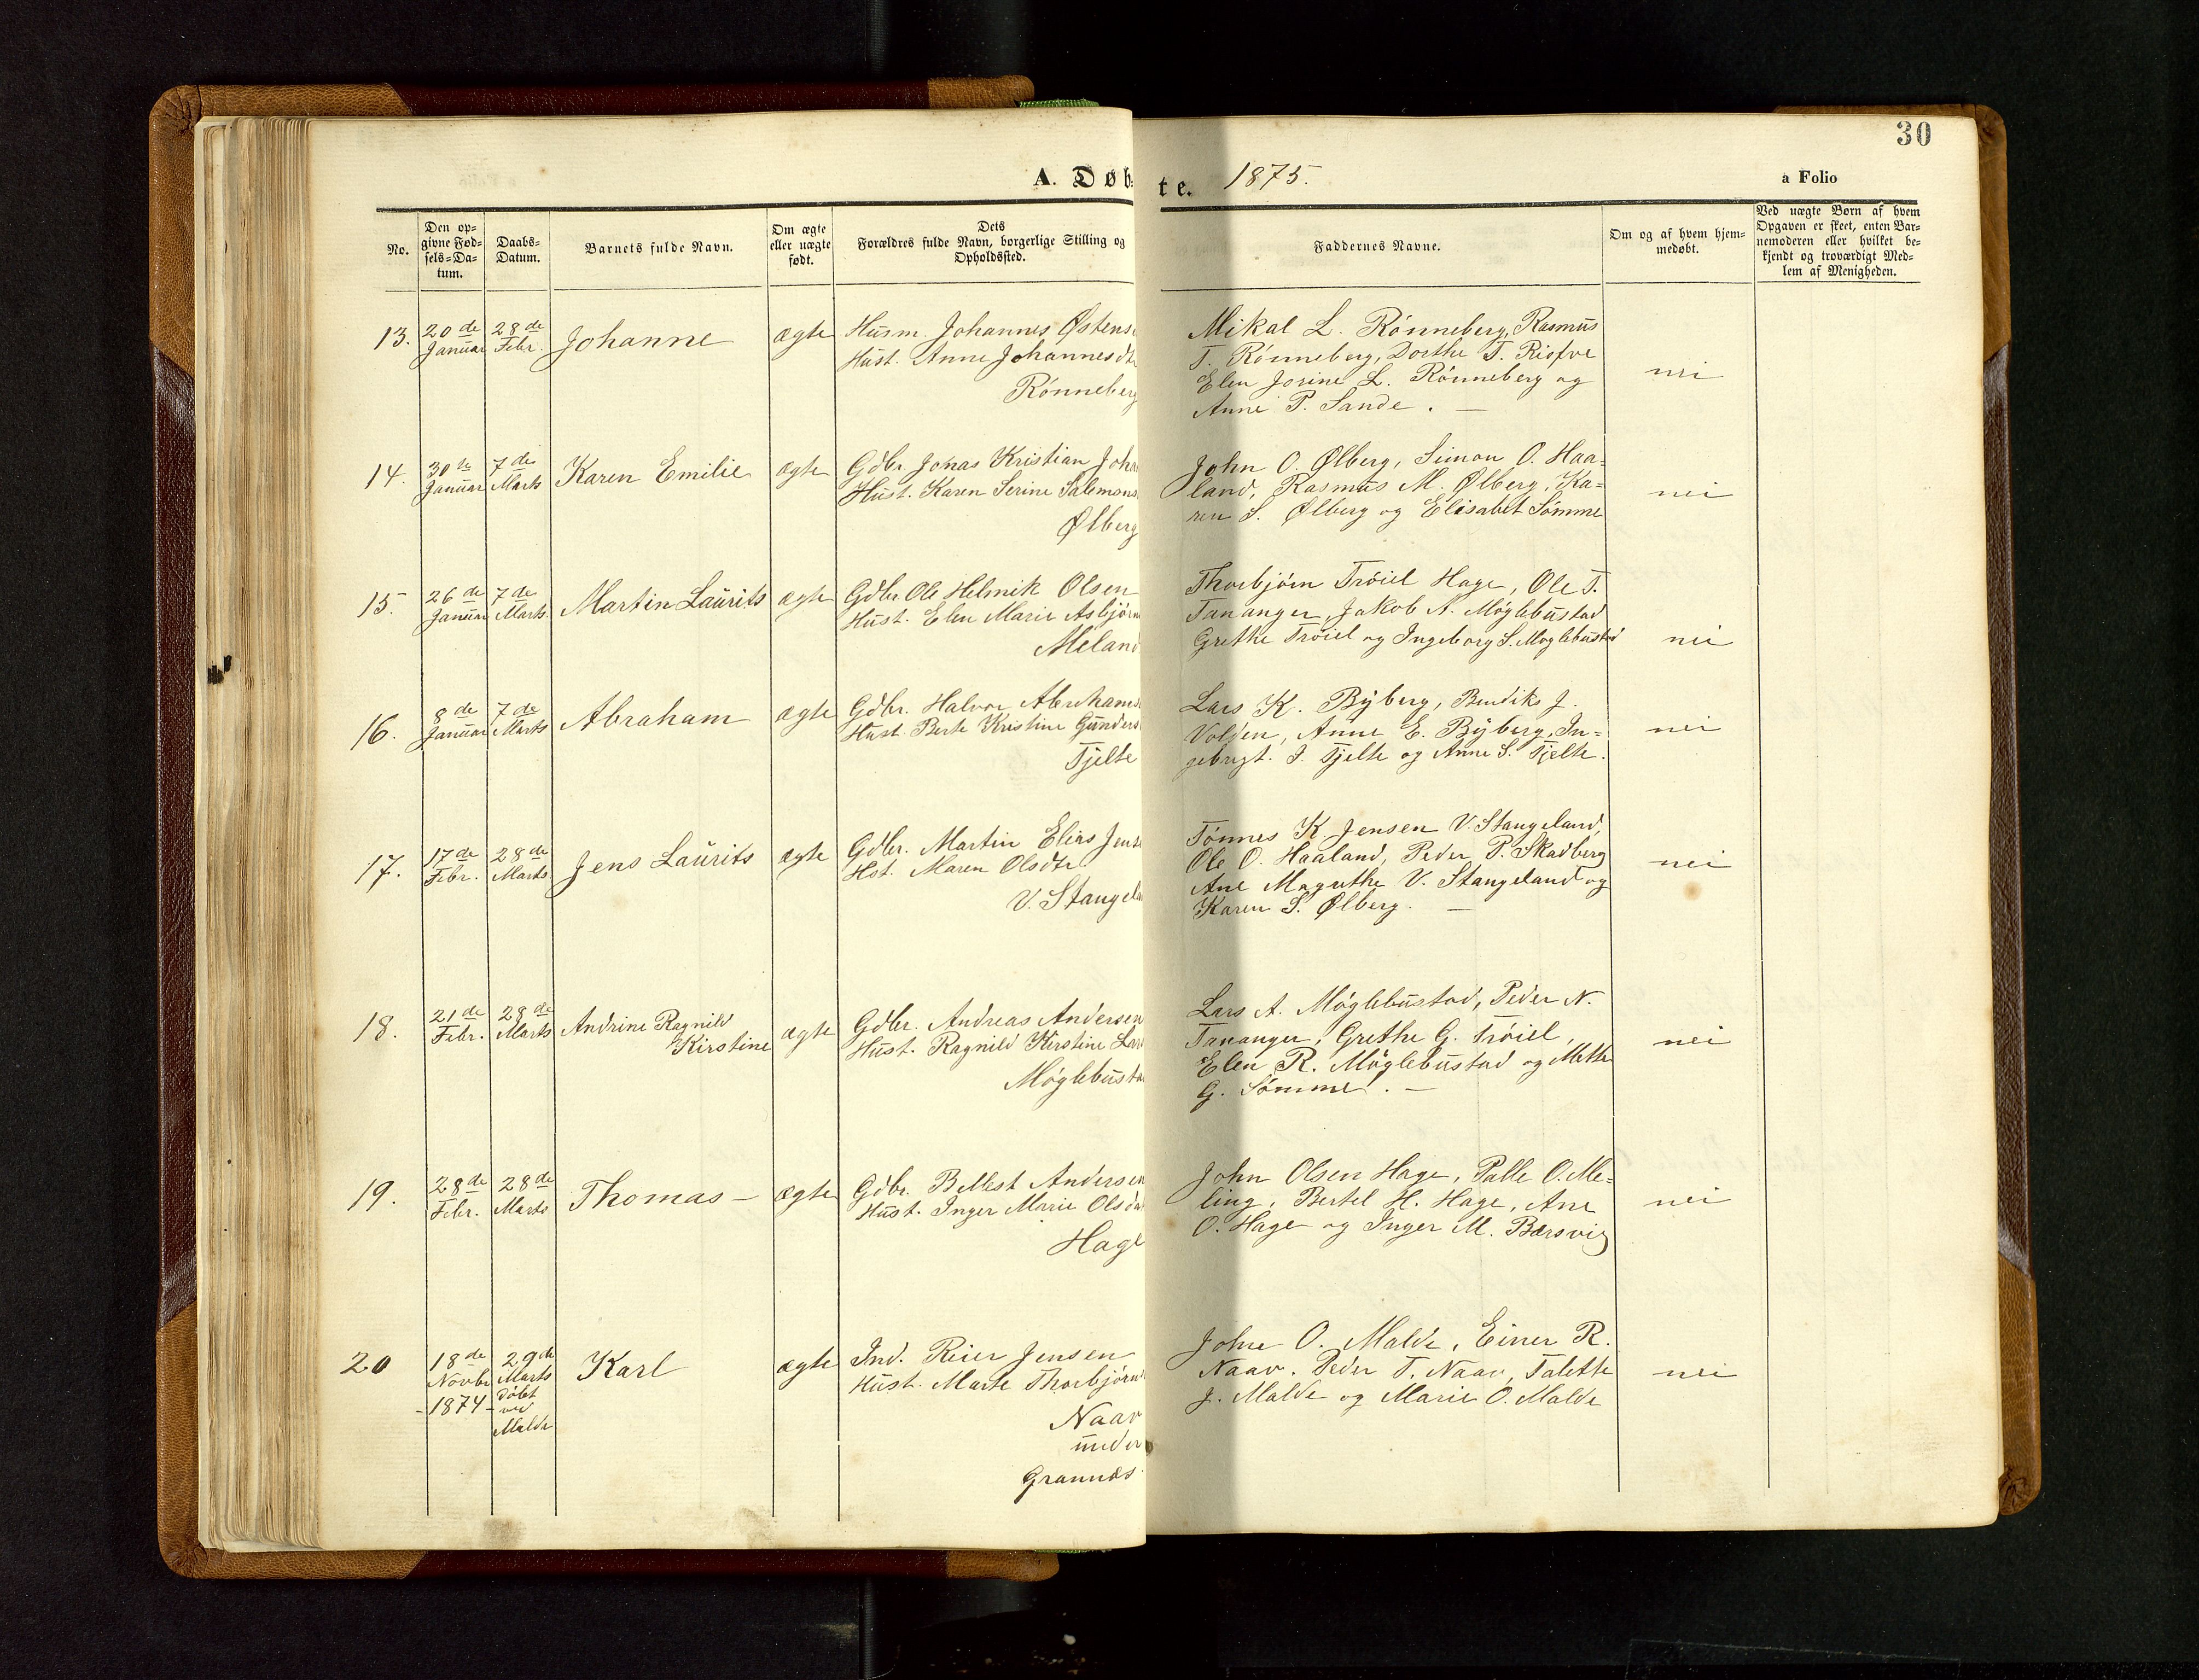 30
A. Døb-
te. 1875.
a Folio
No.
Den op-
givne Fød-
sels-Da-
tum.
Daabs-
Datum.
Barnets fulde Navn.
Om ægte
eller uægte
født.
Dets
Forældres fulde Navn, borgerlige Stilling og
Opholdssted.
Faddernes Navne.
Om og af hvem hjem-
medøbt.
Ved uægte Børn af hvem
Opgaven er skeet, enten Bar-
nemoderen eller hvilket be-
kjendt og troværdigt Med-
lem af Menigheden.
13.
20de
Januar
28de
Febr.
Johanne
ægte
Husm. Johannes Østens
Hust. Anne Johannesdt
Rønneberg
Mikal L. Rønneberg, Rasmus
T. Rønneberg, Dorthe T.
Elen Josine L. Rønneberg og
Anne P. Sande. —
nei
14.
30te
Januar
7de
Marts
Karen Emilie
ægte
Gdbr. Jonas Kristian Joha
Hust. Karen Serine Salomons
Ølberg
John O. Ølberg, Simon O. Haa=
land, Rasmus M. Ølberg, Ka=
ren S. Ølberg og Elisabet Sømme
nei
15.
26de
Januar
7de
Marts.
Martin Laurits
ægte
Gdbr. Ole Helmik Olsen
Hust. Elen Marie Asbjørn
Meland
Thorbjørn Trøiel Hage, Ole T.
Tananger, Jakob A. Møglebustad
Grethe Trøiel og Ingeborg S. Møglebustad
nei
16.
8de
Januar
7de
Marts
Abraham
ægte
Gdbr. Halvor Abrahams
Hust. Berte Kristine Gunders
Tjelte
Lars K. Byberg, Bendiks J.
Volsen, Anne E. Byberg, In=
gebrigt. I. Tjelte og Anne S. Tjelte.
nei
17.
17de
Febr.
28de
Marts
Jens Laurits
ægte
Gdbr. Martin Elias Jens
Hst. Maren Olsdtr
V. Stangela
Tønnes K. Jensen V. Stangeland,
Ole O. Haaland, Peder P. Skadberg
Ane Magrethe V. Stangeland og
Karen S. Ølberg. —
nei
18.
21de
Febr.
28de
Marts
Andrine Ragnild
Kirstine
ægte
Gdbr. Andreas Andersen
Hust. Ragnild Kirstine Lar
Møglebusta
Lars A. Møglebustad, Peder N.
Tananger, Grethe G. Trøiel,
Elen R. Møglebustad og Mette
G. Sømme. —
nei
19.
28de
Febr.
28de
Marts
Thomas —
ægte
Gdbr. Bellest Andersen
Hust. Inger Marie Olsda
Hage
John Olsen Hage, Palle O. Me=
ling, Bertel H. Hage, Ane
O. Hage og Inger M. Bærsvig
nei
20
18de
Novbr
-1874-
29de
Marts
døbt
ved
Malde
Karl
ægte
Ind. Reier Jensen
Hust. Marte Thorbjørns
Naav
under
Grannes
John O. Malde, Einer R.
Naav, Peder T. Naav, Talette
J. Malde og Marie O. Malde
nei